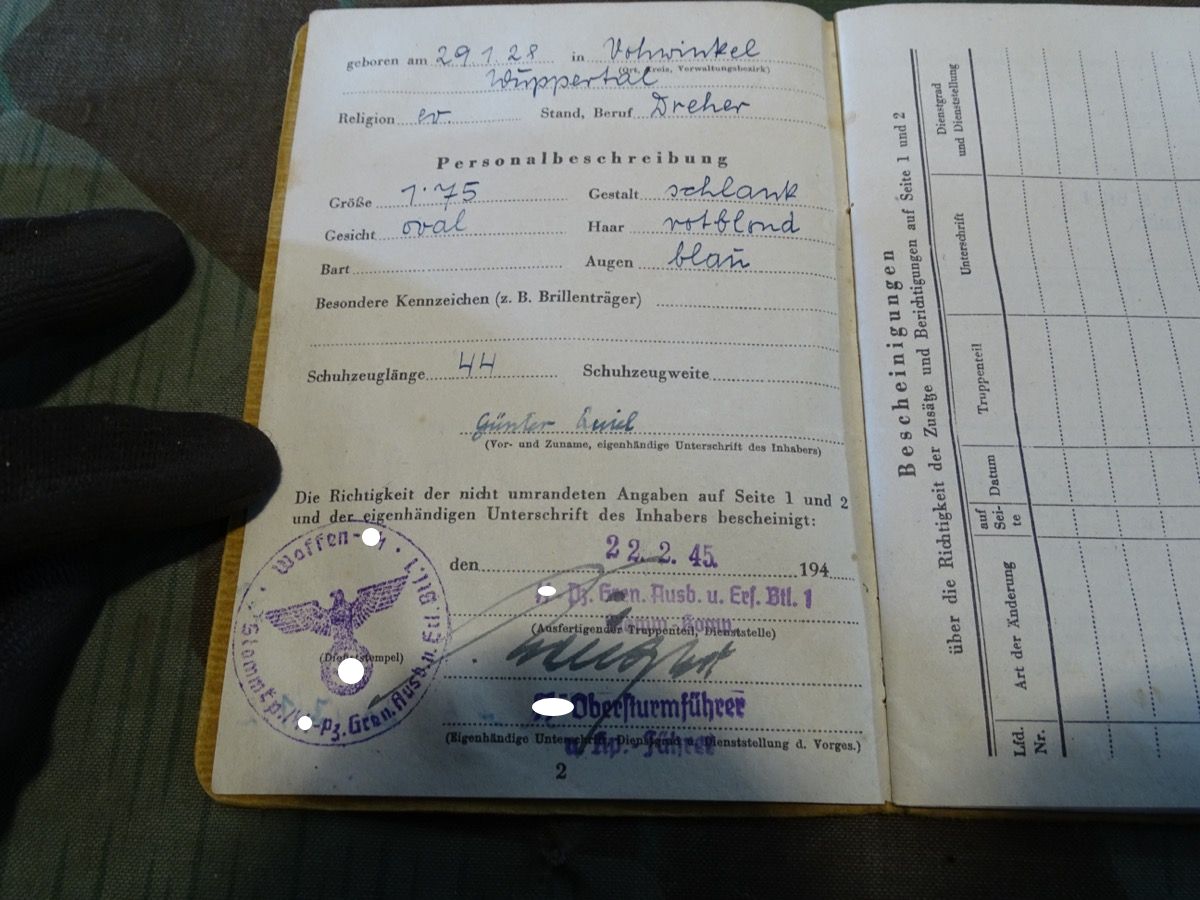 geboren am 29.1.28 in Vohwinkel
(Ort, Kreis, Verwaltungsbezirk)
Wuppertal
Religion ev. Stand, Beruf Dreher
Personalbeschreibung
Größe 1.75 Gestalt schlank
Gesicht oval Haar rotblond
Bart Augen blau
Besondere Kennzeichen (z. B. Brillenträger)
Schuhzeuglänge 44 Schuhzeugweite
Günter
(Vor- und Zuname, eigenhändige Unterschrift des Inhabers)
Die Richtigkeit der nicht umrandeten Angaben auf Seite 1 und 2
und der eigenhändigen Unterschrift des Inhabers bescheinigt:
den 22.2.45. 194
Pz. Gren. Ausb. u. Ers. Btl. 1
Stamm-Komp.
(Ausfertigender Truppenteil, Dienststelle)
(Dienststempel)
Waffen-
Pz. Gren. Ausb. u.
Obersturmführer
(Eigenhändige Unterschrift, Dienstgrad u. Dienststellung d. Vorges.)
u. Kp. Führer
2
Bescheinigungen
über die Richtigkeit der Zusätze und Berichtigungen auf Seite 1 und 2
Lfd. Nr.
Art der Änderung
auf Sei- te
Datum
Truppenteil
Unterschrift
Dienstgrad und Dienststellung